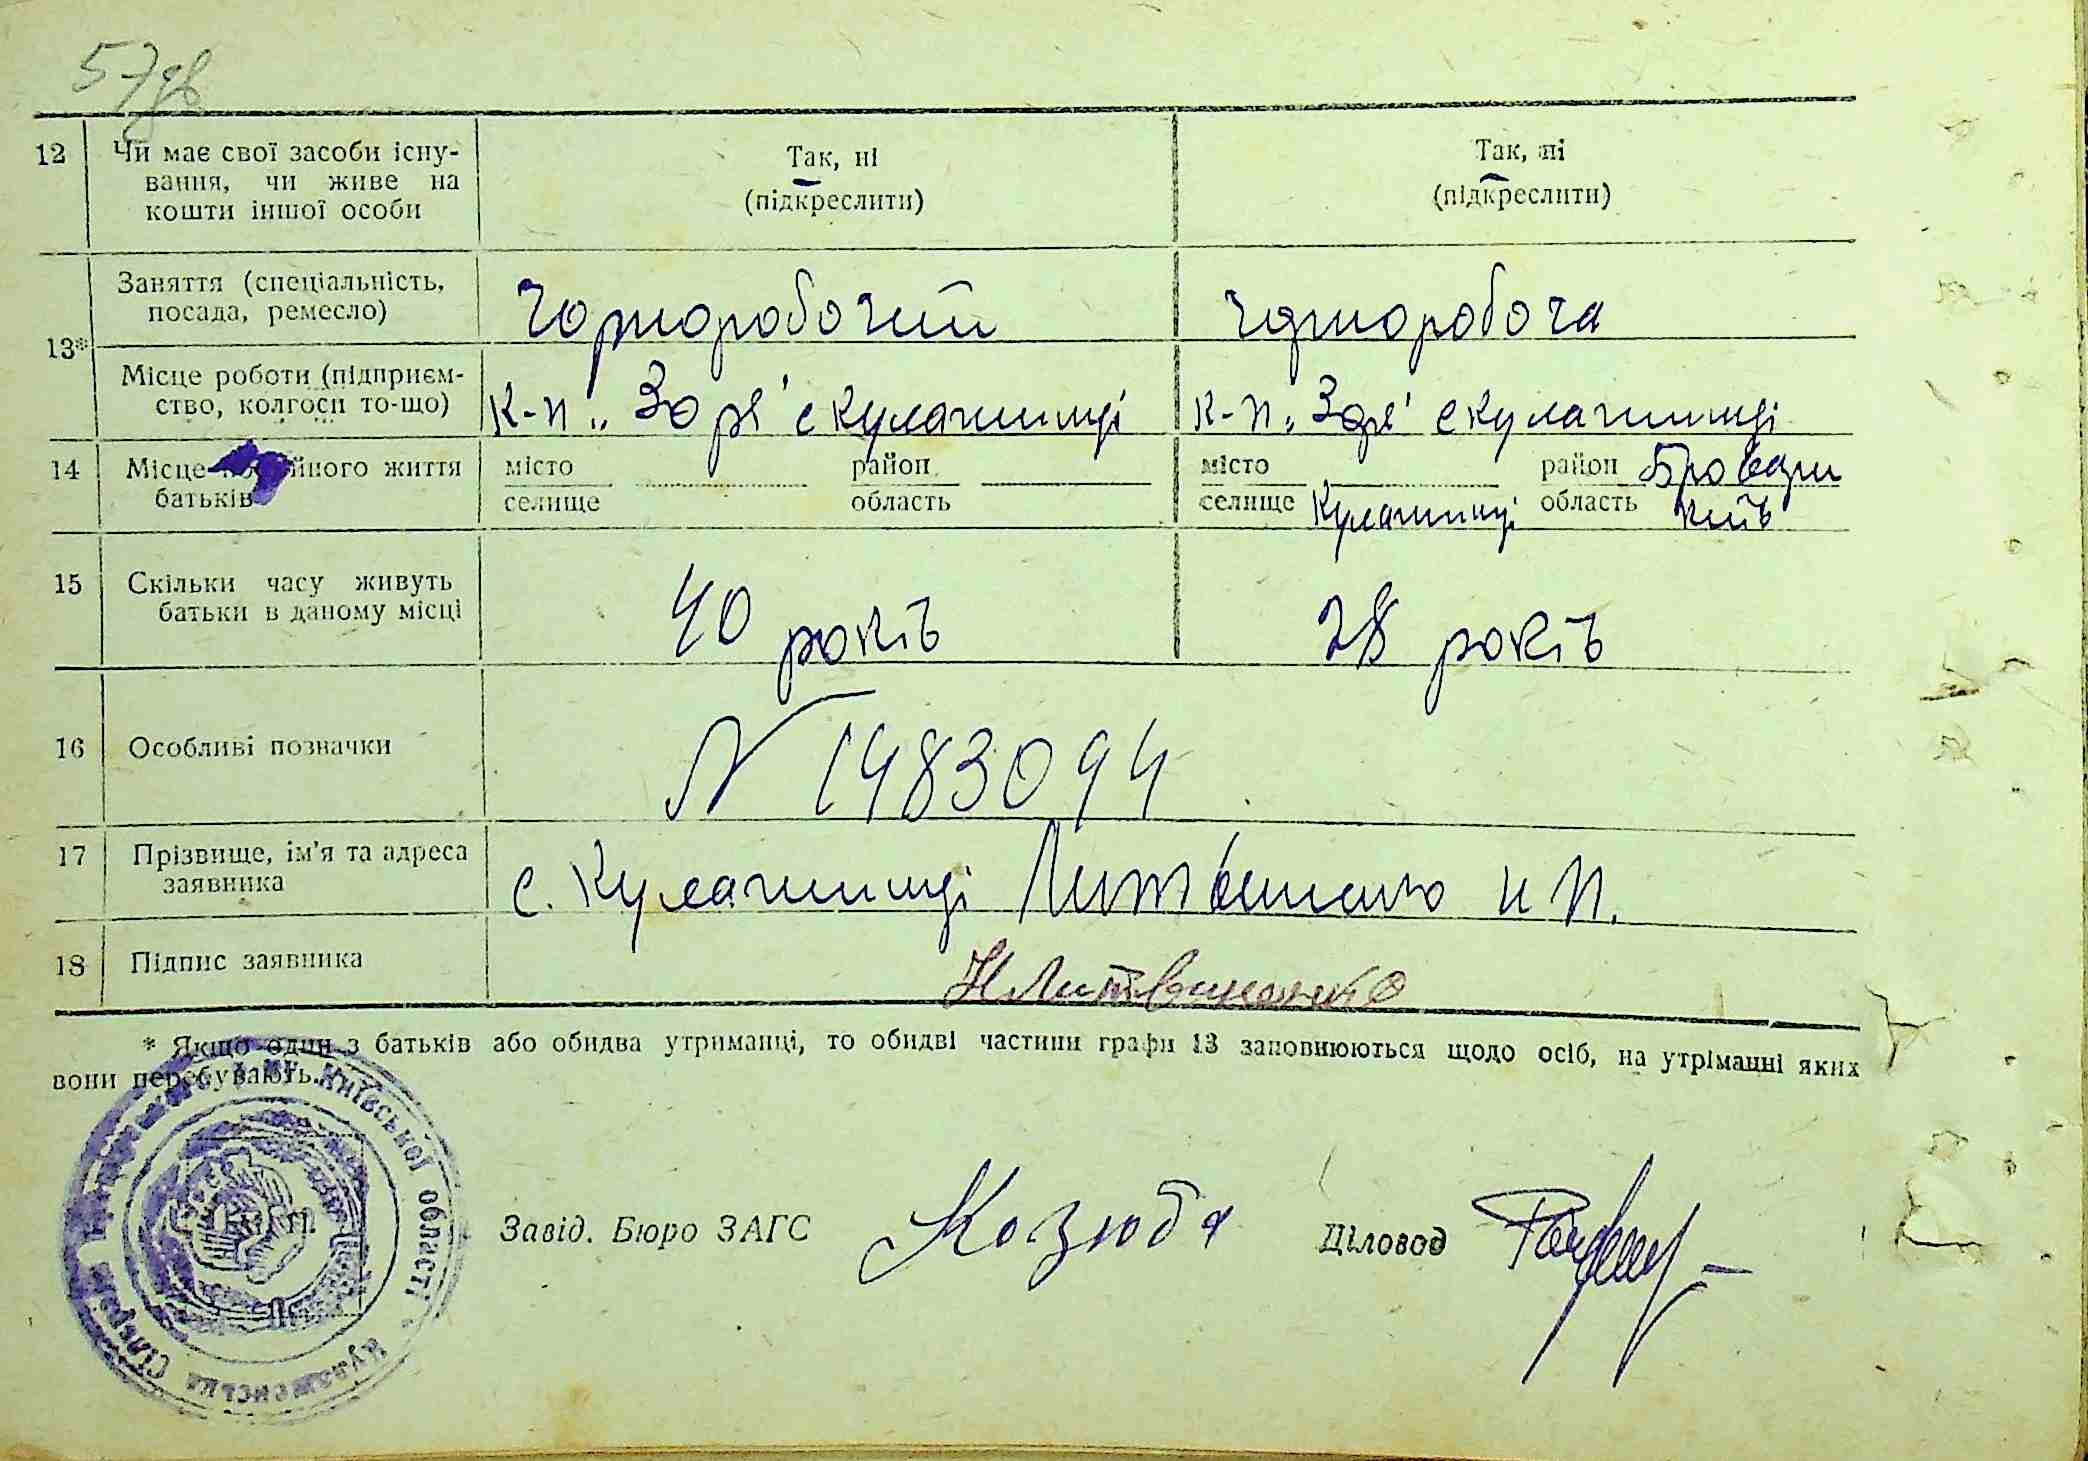 57зв
12 Чи має свої засоби існу- Так, ні Так, ні
вання, чи живе на (підкреслити) (підкреслити)
кошти іншої особи
Заняття (спеціальність, Чорноробочий Чорноробоча
посада, ремесло)
13*
Місце роботи (підприєм- к-п „Зоря" с Кулажинці к-п „Зоря" с Кулажинці
ство, колгосп то-що)
14 Місце життя місто район місто район Бровари
батьків селище область селище Кулажинці область Київ
15 Скільки часу живуть 40 років 28 років
батьки в даному місці
16 Особливі позначки N 1483094
17 Прізвище, ім'я та адреса с. Кулажинці Литвиненко Н П.
заявника
18 Підпис заявника НЛитвиненко
* Якщо один з батьків або обидва утриманці, то обидві частини графи 13 заповнюються щодо осіб, на утріманні яких
вони перебувають.
Київської області
Сільрада
М. П.
Завід. Бюро ЗАГС Козюба Діловод